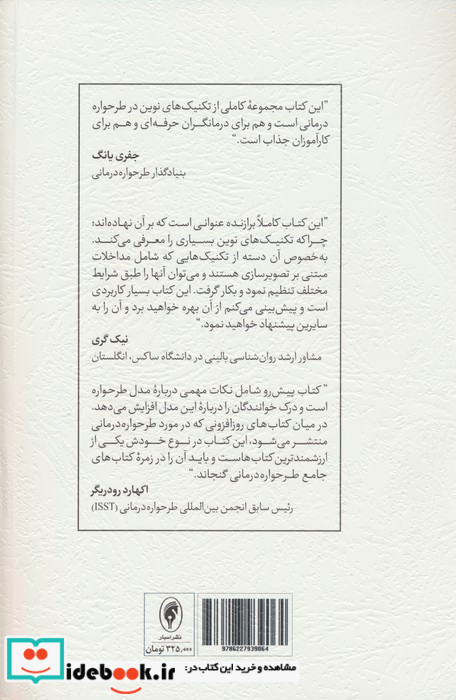 "این کتاب مجموعهٔ کاملی از تکنیک‌های نوین در طرحواره
درمانی است و هم برای درمانگران حرفه‌ای و هم برای
کارآموزان جذاب است."
جفری یانگ
بنیادگذار طرحواره‌درمانی
"این کتاب کاملاً برازنده عنوانی است که بر آن نهاده‌اند؛
چراکه تکنیک‌های نوین بسیاری را معرفی می‌کند.
به‌خصوص آن دسته از تکنیک‌هایی که شامل مداخلات
مبتنی بر تصویرسازی هستند و می‌توان آنها را طبق شرایط
مختلف تنظیم نمود و بکار گرفت. این کتاب بسیار کاربردی
است و پیش‌بینی می‌کنم از آن بهره خواهید برد و آن را به
سایرین پیشنهاد خواهید نمود."
نیک گری
مشاور ارشد روان‌شناسی بالینی در دانشگاه ساکس، انگلستان
" کتاب پیش‌رو شامل نکات مهمی دربارهٔ مدل طرحواره
است و درک خوانندگان را دربارهٔ این مدل افزایش می‌دهد.
در میان کتاب‌های روزافزونی که در مورد طرحواره‌درمانی
منتشر می‌شود، این کتاب در نوع خودش یکی از
ارزشمندترین کتاب‌هاست و باید آن را در زمرهٔ کتاب‌های
جامع طرحواره‌درمانی گنجاند."
اکهارد رودریگر
رئیس سابق انجمن بین‌المللی طرحواره‌درمانی (ISST)
نشر اسبار
۳۲۵,۰۰۰ تومان
9786227939064
مشاهده و خرید این کتاب در:
idebook.ir